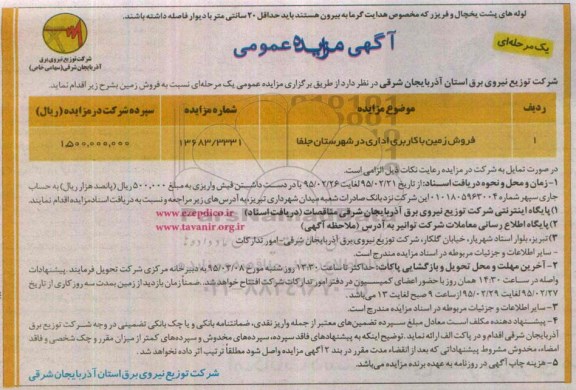 لوله های پشت یخچال و فریزر که مخصوص هدایت گرما به بیرون هستند باید حداقل ۲۰ سانتی متر با دیوار فاصله داشته باشند.
یک مرحله‌ای
آگهی مزایده عمومی
شرکت توزیع نیروی برق
آذربایجان شرقی (سهامی خاص)
شرکت توزیع نیروی برق استان آذربایجان شرقی در نظر دارد از طریق برگزاری مزایده عمومی یک مرحله‌ای نسبت به فروش زمین بشرح زیر اقدام نماید.
ردیف موضوع مزایده شماره مزایده سپرده شرکت در مزایده (ریال)
۱ فروش زمین با کاربری اداری در شهرستان جلفا ۱۳۶۸۳/۳۳۳۱ ۱,۵۰۰,۰۰۰,۰۰۰
در صورت تمایل به شرکت در مزایده رعایت نکات ذیل الزامی است.
۱- زمان و محل و نحوه دریافت اسناد: از تاریخ ۹۵/۰۲/۲۱ لغایت ۹۵/۰۲/۲۶ با در دست داشتن فیش واریزی به مبلغ ۵۰۰,۰۰۰ ریال (پانصد هزار ریال) به حساب
جاری سپهر ۰۱۰۱۸۰۵۹۶۳۰۰۴ این شرکت نزد بانک صادرات شعبه میدان شهرداری تبریز به آدرس‌های زیر مراجعه و نسبت به دریافت اسناد مزایده اقدام نمایند.
۱) پایگاه اینترنتی شرکت توزیع نیروی برق آذربایجان شرقی مناقصات (دریافت اسناد) www.ezepdico.ir
۲) پایگاه اطلاع رسانی معاملات شرکت توانیر به آدرس (ملاحظه آگهی) www.tavanir.org.ir
۳) تبریز، بلوار استاد شهریار، خیابان گلکار، شرکت توزیع نیروی برق آذربایجان شرقی- امور تدارکات
- سایر اطلاعات و جزئیات مربوطه در اسناد مزایده مندرج است.
۲- آخرین مهلت و محل تحویل و بازگشایی پاکات: حداکثر تا ساعت ۱۳:۳۰ روز شنبه مورخ ۹۵/۰۳/۰۸ به دبیرخانه مرکزی شرکت تحویل فرمایند. پیشنهادات
واصله در ساعت ۱۴:۳۰ همان روز با حضور اعضای کمیسیون در دفتر امور تدارکات شرکت افتتاح خواهد شد. ضمنا زمان بازدید از زمین بمدت سه روز کاری از تاریخ
۹۵/۰۲/۲۷ لغایت ۹۵/۰۲/۲۹ از ساعت ۹ صبح لغایت ۱۳ می‌باشد.
۳- سایر اطلاعات و جزئیات مربوطه در اسناد مزایده مندرج است.
۴- پیشنهاد دهنده مکلف است معادل مبلغ سپرده تضمین‌های معتبر از جمله واریز نقدی، ضمانتنامه بانکی و یا چک بانکی تضمینی در وجه شرکت توزیع برق
آذربایجان شرقی اقدام و در پاکت الف ارائه نماید. توضیح اینکه به پیشنهادهای فاقد سپرده، سپرده‌های مخدوش و سپرده‌های کمتر از میزان مقرر و چک شخصی و فاقد
امضاء، مخدوش مشروط پیشنهاداتی که بعد از انقضاء مدت مقرر در بند ۲ آگهی مزایده واصل شود مطلقاً ترتیب اثر داده نخواهد شد.
۵- هزینه چاپ آگهی در روزنامه به عهده برنده مزایده می‌باشد.
شرکت توزیع نیروی برق استان آذربایجان شرقی